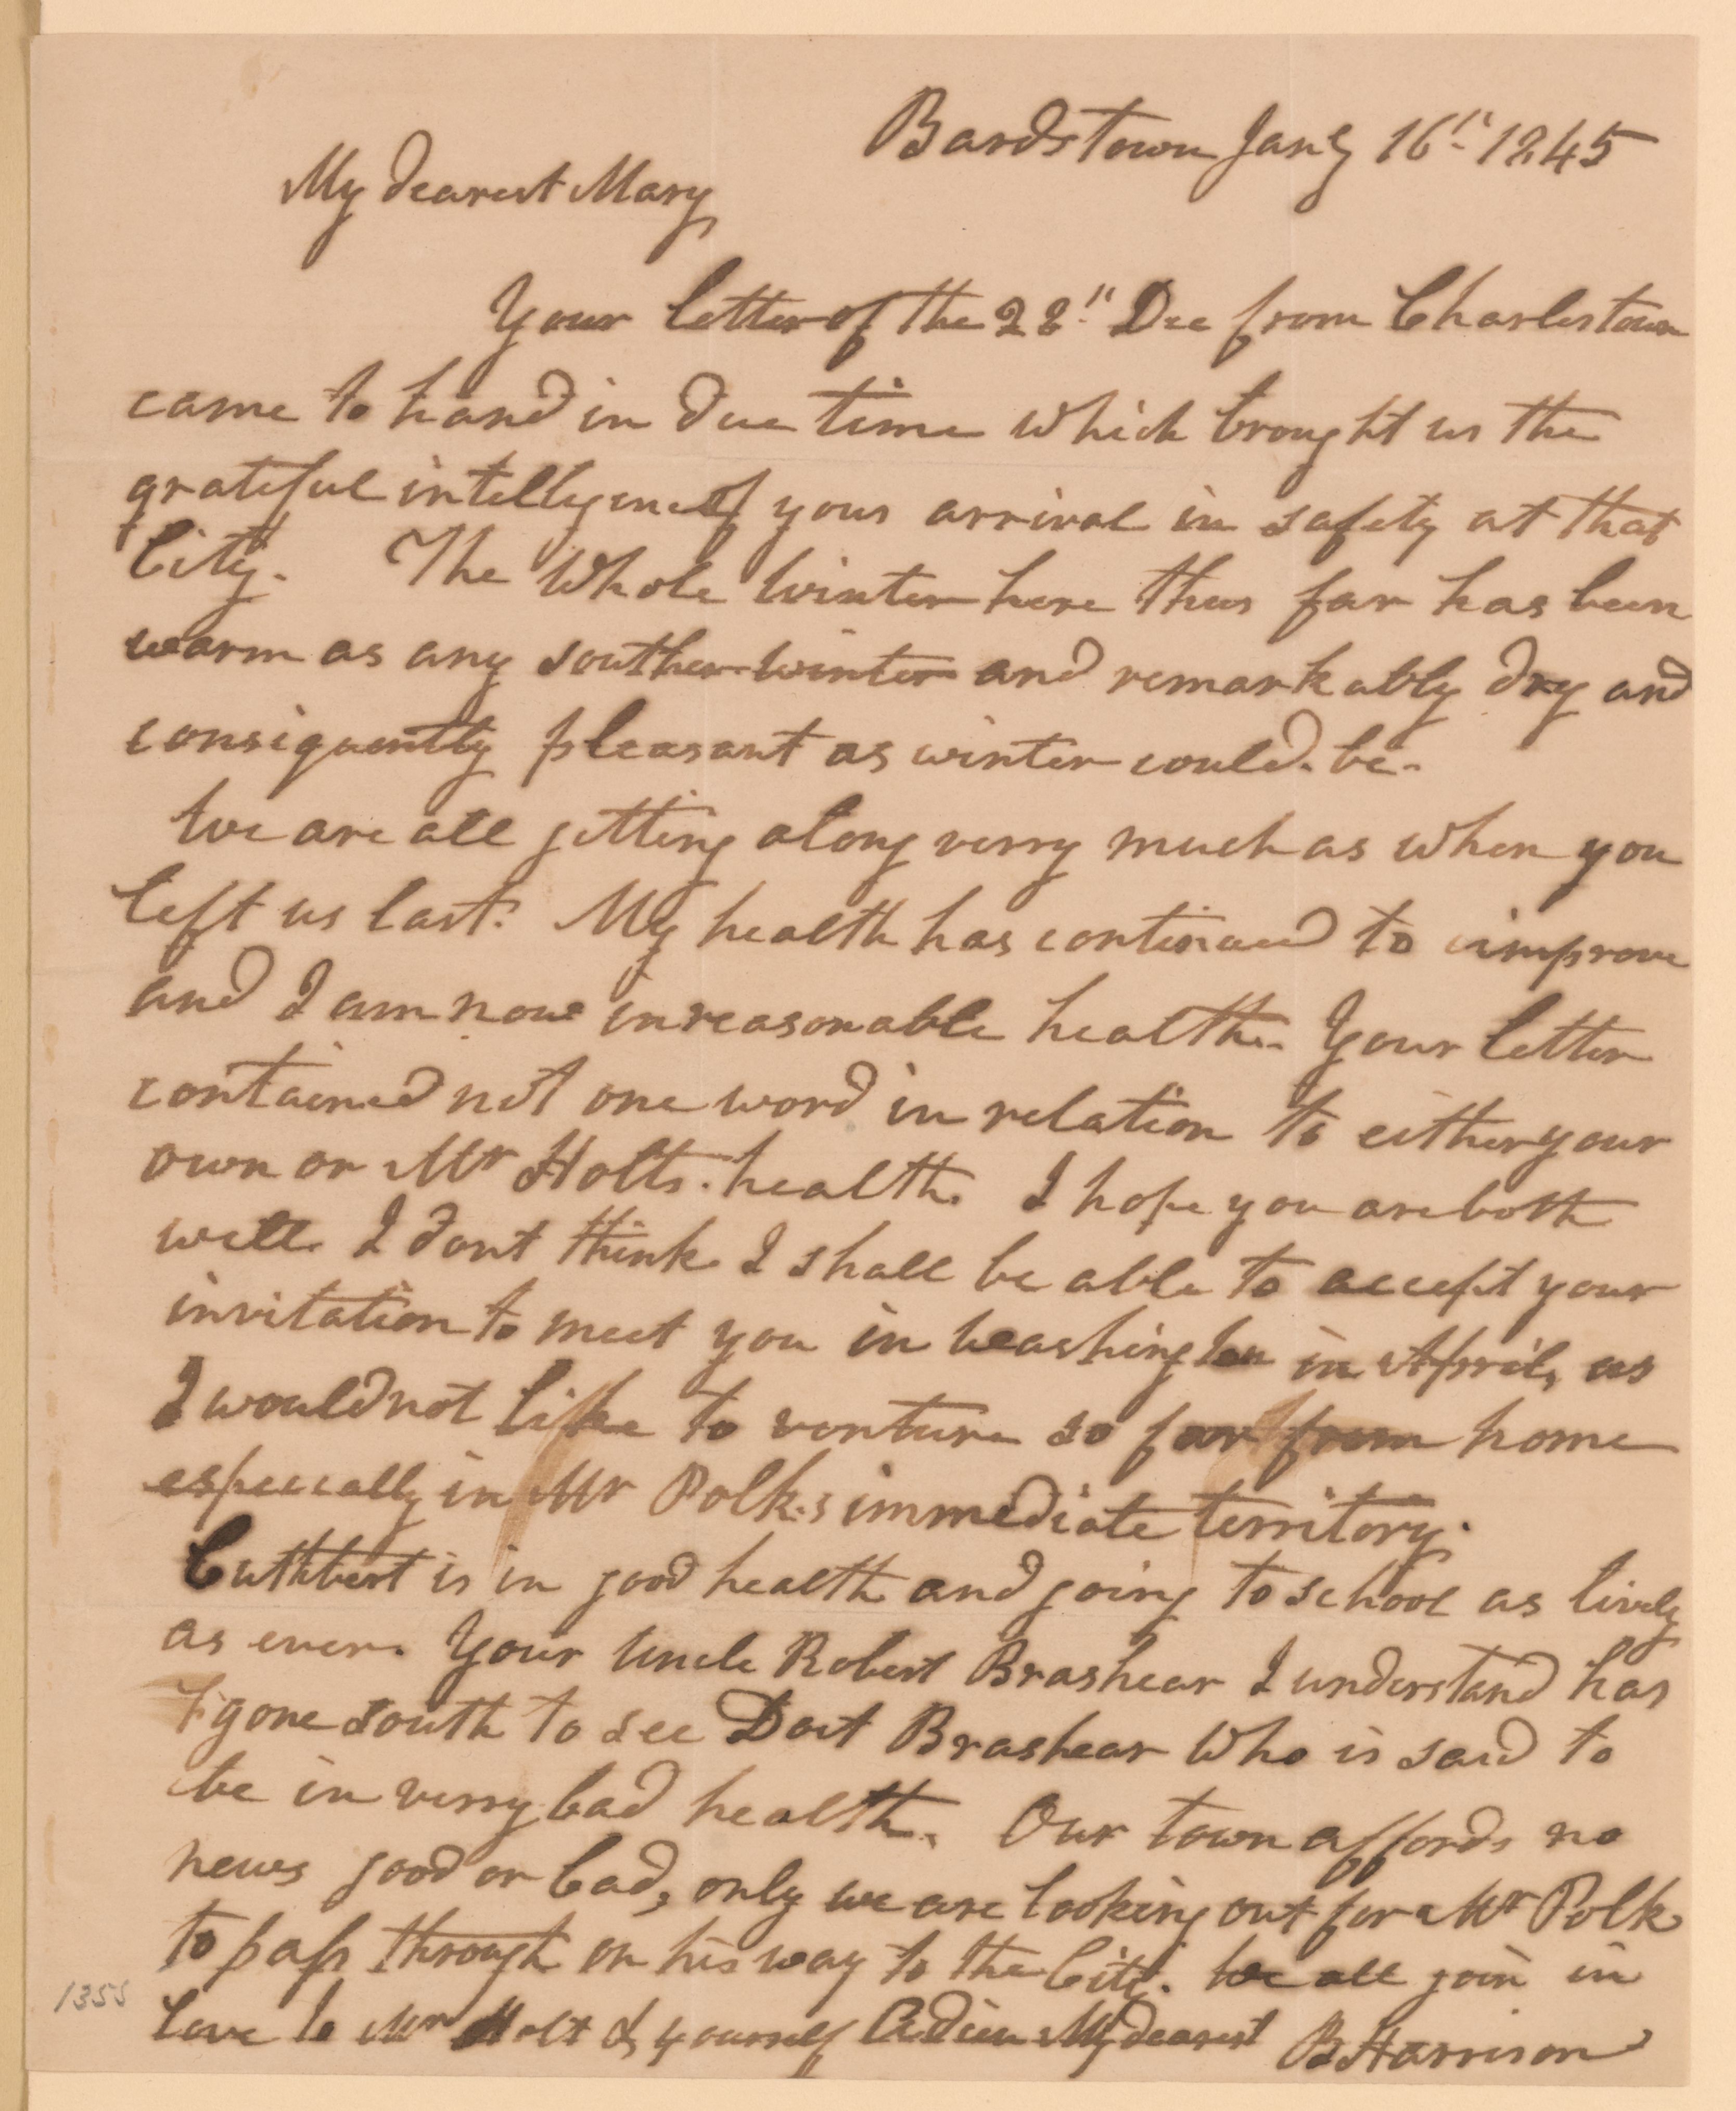 Bardstown Jany 16th 1845
My dearest Mary
Your letter of the 28th Dec from Charlestown
came to hand in due time which brought us the
grateful intelligence of your arrival in safety at that
City. The Whole Winter here thus far has been
warm as any southern winter and remarkably dry and
consiquently pleasant as winter could be.
We are all getting along verry much as when you
left us last. My health has continued to improve
and I am now in reasonable health. Your letter
contained not one word in relation to either your
own or Mr Holts health. I hope you are both
well. I dont think I shall be able to accept your
invitation to meet you in Washington in April, as
I would not like to venture so far from home
especcally in Mr Polks immediate territory.
Cuthbert is in good health and going to school as lively
as ever. Your Uncle Robert Brashear I understand has
gone south to see Doct Brashear Who is said to
be in verry bad health. Our town affords no
news good or bad, only we are looking out for Mr Polk
to pass through on his way to the City. We all join in
love to Mr Holt & yourself Adieu My dearest B Harrison
1355